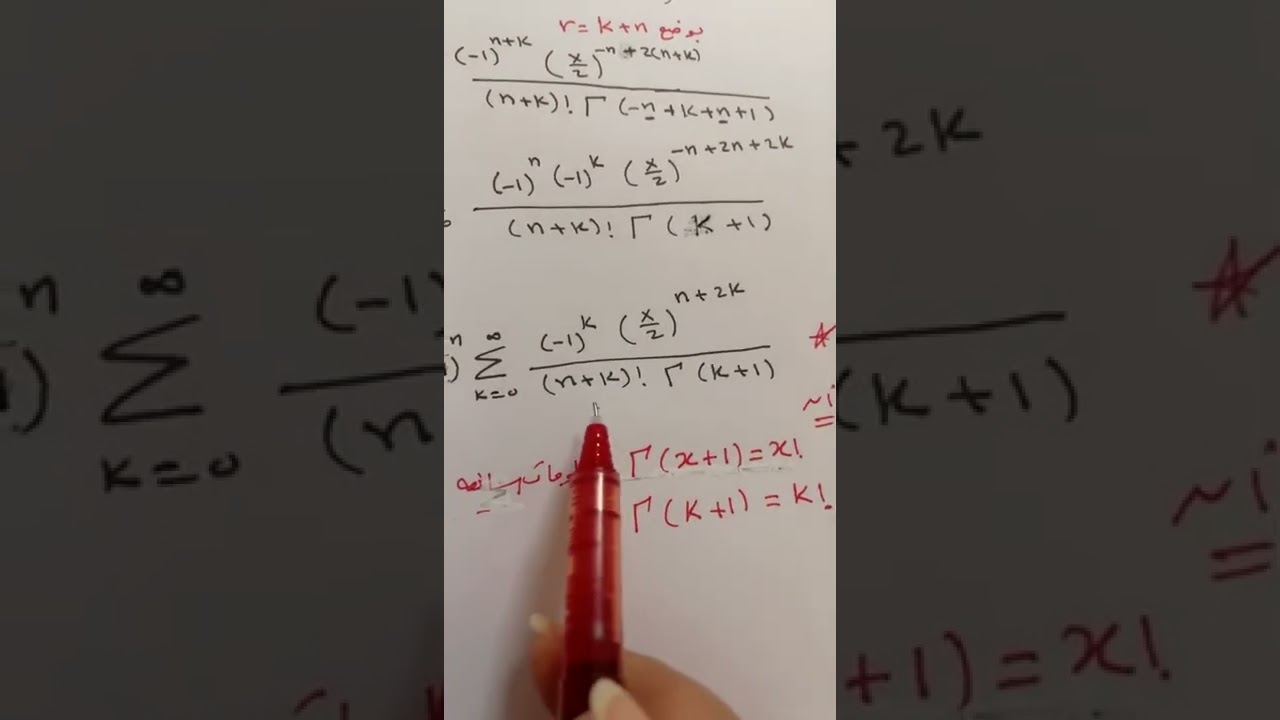 بوضع r = k+n
(-1)^{n+k} (x/2)^{-n+2(n+k)}
(n+k)! Γ(-n+k+n+1)
(-1)^n (-1)^k (x/2)^{-n+2n+2k}
(n+k)! Γ(k+1)
)^n ∑_{k=0}^{∞} (-1)^k (x/2)^{n+2k}
(n+k)! Γ(k+1)
Γ(x+1) = x!
Γ(k+1) = k!